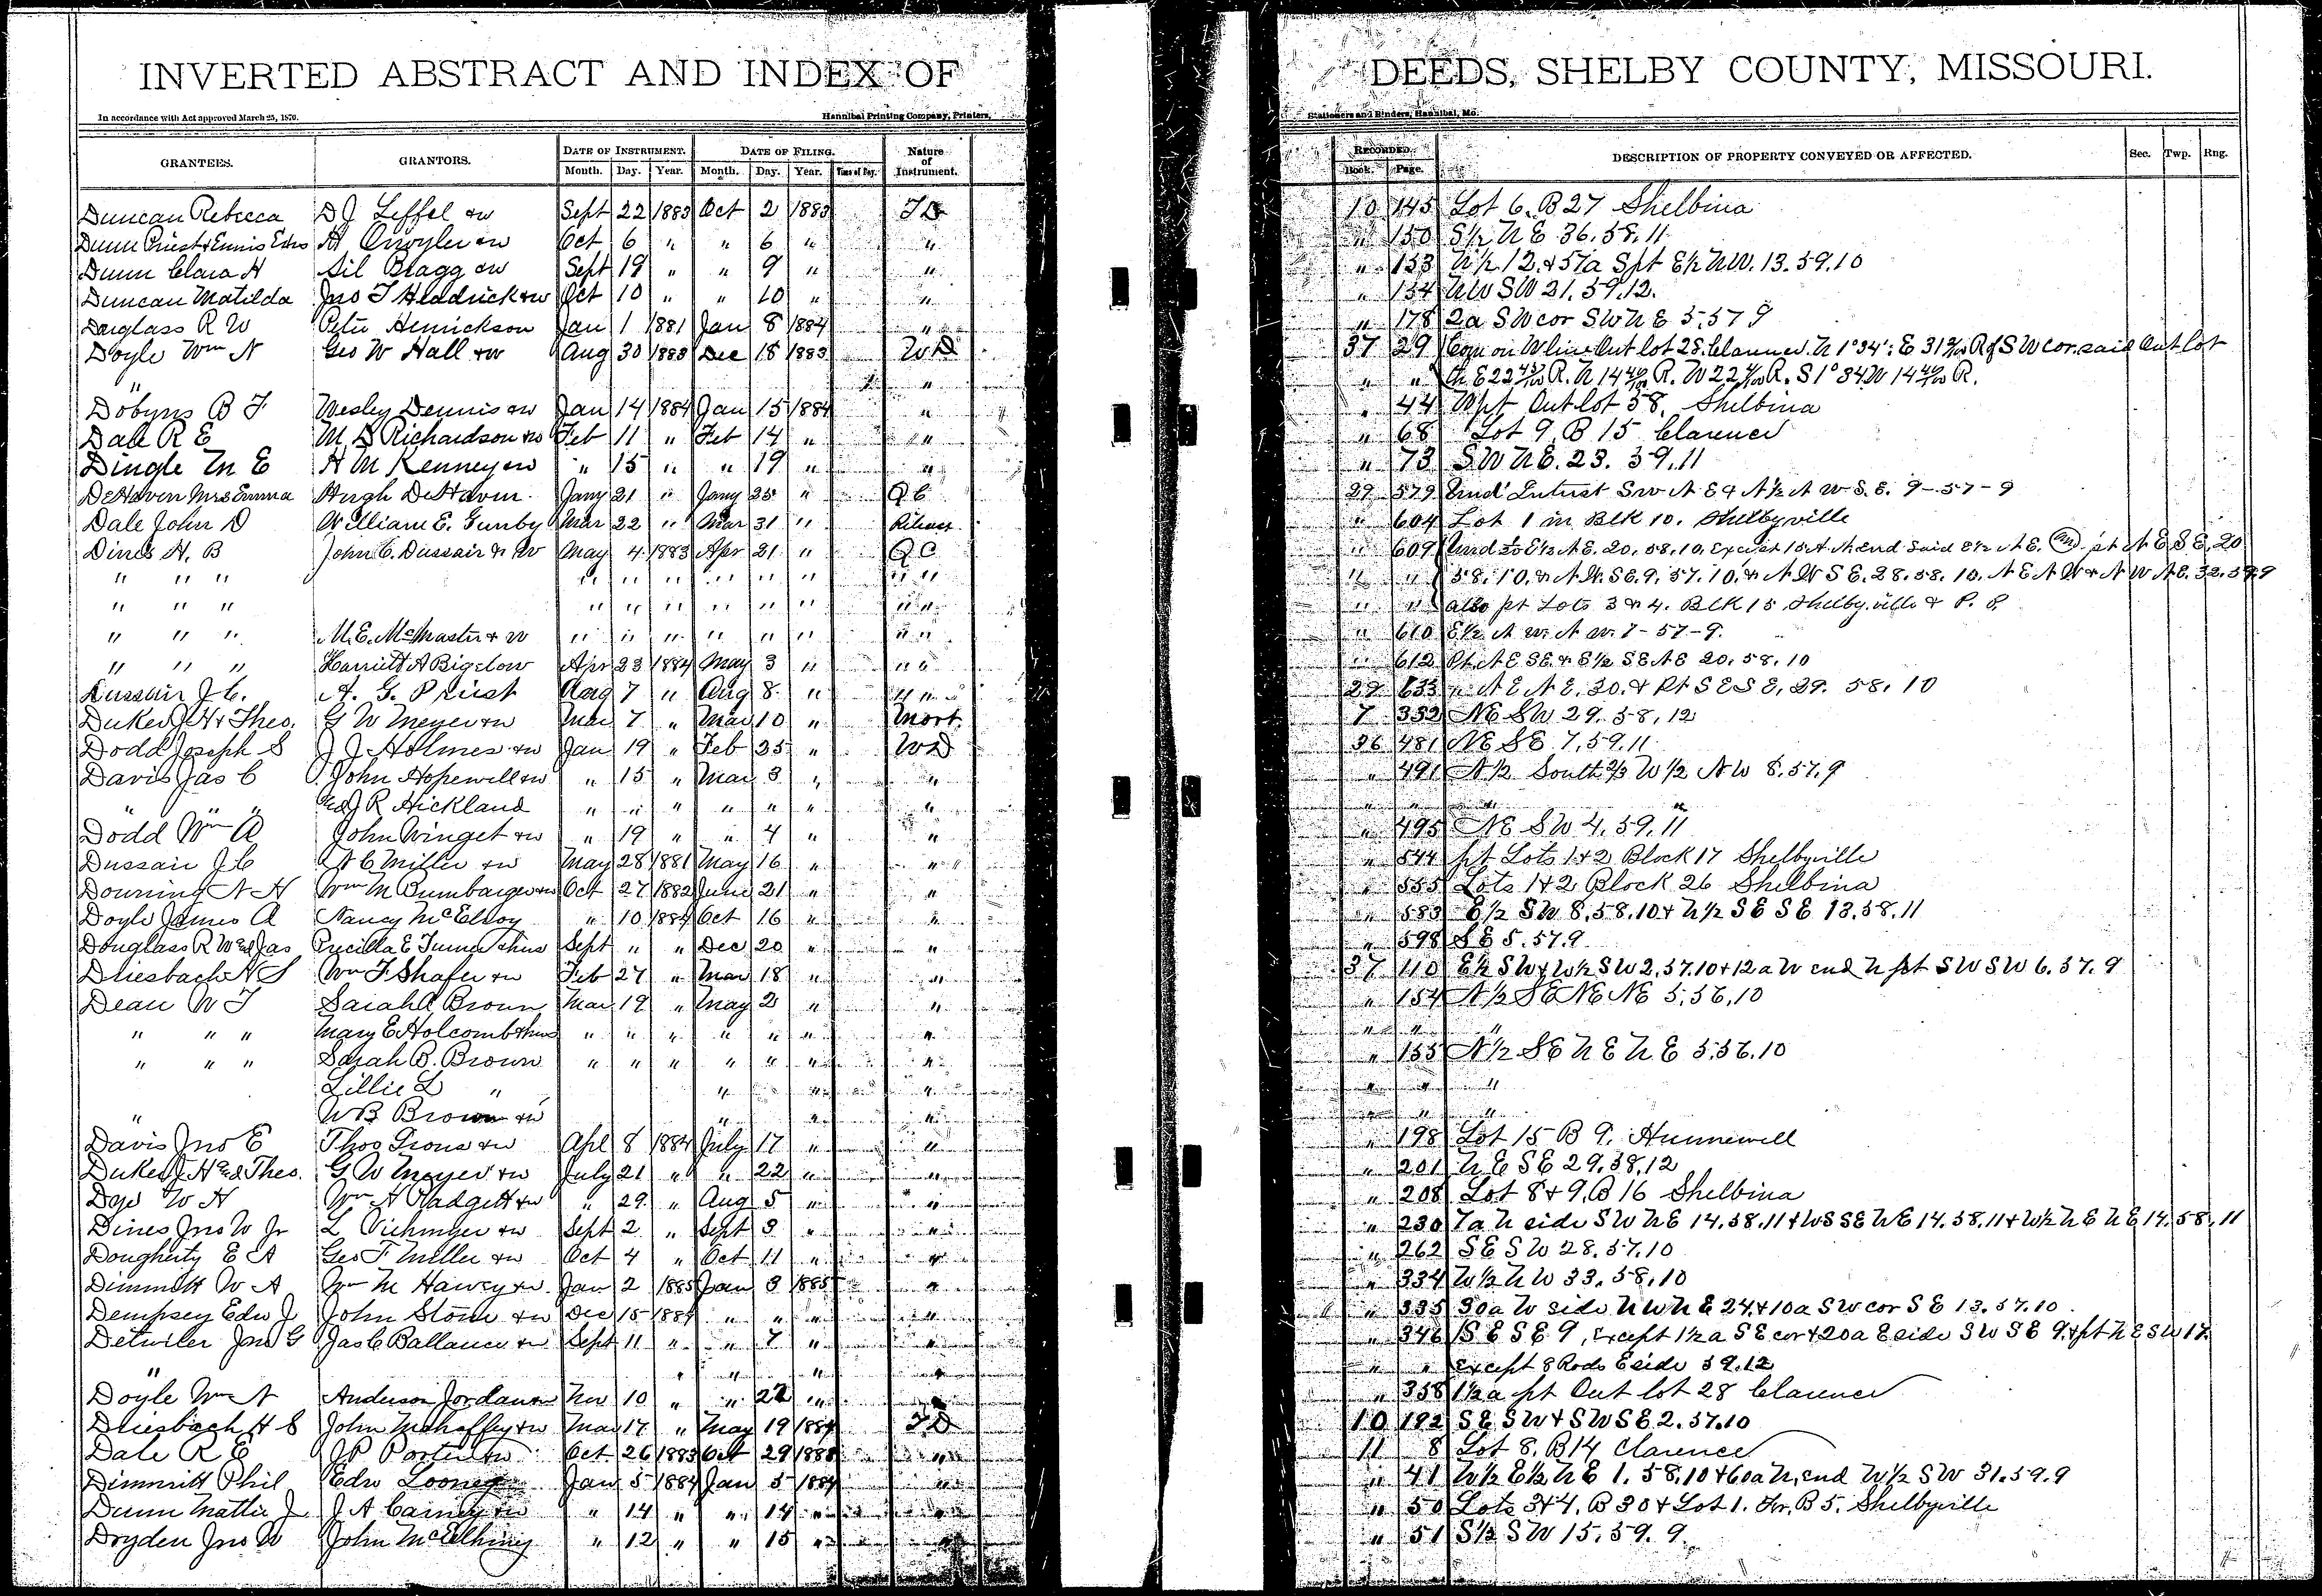 INVERTED ABSTRACT AND INDEX OF DEEDS, SHELBY COUNTY, MISSOURI.
In accordance with Act approved March 25, 1870. Hannibal Printing Company, Printers, Stationers and Binders, Hannibal, Mo.
GRANTEES. GRANTORS. DATE OF INSTRUMENT. DATE OF FILING. Nature of Instrument. RECORDED. DESCRIPTION OF PROPERTY CONVEYED OR AFFECTED. Sec. Twp. Rng.
Month. Day. Year. Month. Day. Year. Time of Day. Book. Page.
Duncan Rebecca D J Leffel &w Sept 22 1883 Oct 2 1883 TD 10 145 Lot 6. B 27 Shelbina
Dunn Priest & Ennis Exrs &w Oct 6 " " 6 " " " 150 S½ N E 36.58.11
Dunn Clara H Sil Bragg &w Sept 19 " " 9 " " " 153 N½ 12. & 57a Spt E½ NW. 13.59.10
Duncan Matilda Jno T Hendrick &w Oct 10 " " 10 " " " 154 NW SW 21.59.12.
Douglass R W Peter Henrickson Jan 1 1881 Jan 8 1884 " " 178 2a SW cor SW N E 5.57 9
Doyle Wm N Geo W Hall &w Aug 30 1883 Dec 18 1883 WD 37 29 Com on W line Out lot 28. Clarence. N 1°34': E R of S W cor. said Out lot
" " " " th E 22 R. N 14 R. W 22 R. S 1° 34 W 14 R.
Dobyns B F Wesley Dennis &w Jan 14 1884 Jan 15 1884 " " 44 Wpt Out lot 58, Shelbina
Dale R E M D Richardson &w Feb 11 " Feb 14 " " " 68 Lot 9, B 15 Clarence
Dingle M E H M Kenney &w " 15 " " 19 " " " 73 S.W N E. 23. 59.11
DeHaven Mrs Emma Hugh DeHaven. Jany 21 " Jany 25 " Q C 29 579 Und Interest SW N E & N½ N W S. E. 9-57-9
Dale John D William E. Gunby Mar 22 " Mar 31 " Release " 604 Lot 1 in Blk 10. Shelbyville
Dines H. B John C. Dussair & W May 4 1883 Apr 21 " Q C " 609 Und E½ N E. 20, 58, 10, Except 15 A N end said E½ N E. and pt N E S E. 20
" " " " " " " " " " " " " 58. 10. & N W. SE. 9. 57. 10. & N W S E. 28. 58. 10. N E N W & N W N E. 32. 59.9
" " " " " " " " " " " " " also pt Lots 3 & 4. Blk 15 Shelbyville & P. P.
" " " M. E. McMaster & W " " " " " " " " " 610 E½ N W. N W. 7-57-9.
" " " Harriett A Bigelow Apr 23 1884 May 3 " " " " 612 Pt. N E SE. & S½ SE NE 20.58.10
Dussair J C. H. G. Priest Aug 7 " Aug 8 " " " 29 633 " N E N E. 30. & Pt S E S E, 29. 58. 10
Duker J H & Theo. G W Meyer &w Mar 7 " Mar 10 " Mort. 7 352 NE SW 29.58,12
Dodd Joseph S J J Holmes &w Jan 19 " Feb 25 " WD 36 481 NE SE 7.59.11
Davis Jas C John Hopewell &w " 15 " Mar 3 " " " 491 N½ South ⅔ W½ NW 8.57.9
" " " J R Hickland " " " " " " " " " "
Dodd Wm A John Winget &w " 19 " " 4 " " " 495 NE SW 4.59.11
Dussair J C Miller &w May 28 1881 May 16 " " " 544 pt Lots 1 & 2 Block 17 Shelbyville
Downing N H Wm M Bumbarger &w Oct 27 1882 June 21 " " " 555 Lots 1 & 2 Block 26 Shelbina
Doyle James A Nancy McElroy " 10 1884 Oct 16 " " " 583 E½ SW 8,58.10 & N½ SE SE 13.58.11
Douglass R W and Jas Precilla E Turner & hus Sept " " Dec 20 " " " 598 SE 5.57.9
Driesbach H S Wm F Shafer &w Feb 27 " Mar 18 " " 37 110 E½ SW & W½ SW 2.57.10 & 12 a W end N pt SW SW 6.57.9
Dean W T Sarah A Brown Mar 19 " May 2 " " " 154 N½ SE NE NE 5.56,10
" " " Mary E Holcomb & hus " " " " " " " " " "
" " " Sarah B. Brown " " " " " " " " 155 N½ SE N E N E 5.56.10
Lillie L " " " " " " "
" W B Brown &w " " " " " "
Davis Jno E Thos Irons &w Apl 8 1884 July 17 " " " 198 Lot 15 B 9. Hunnewell
Duker J H and Theo. G W Meyer &w July 21 " " 22 " " " 201 N E SE 29.58,12
Dye W H Wm H Padgett &w " 29 " Aug 5 " " " 208 Lot 8 & 9. B 16 Shelbina
Dines Jno W Jr L Vichmyer &w Sept 2 " Sept 3 " " " 230 7a N side SW NE 14.58.11 & WS SE NE 14.58.11 & W½ N E N E 14.58.11
Dougherty E A Geo F Miller &w Oct 4 " Oct 11 " " " 262 SE SW 28.57.10
Dimmitt W A Wm M Harvey &w Jan 2 1885 Jan 3 1885 " " 334 W½ N W 33.58,10
Dempsey Edw J John Stone &w Dec 15 1884 " " " " " 335 30a W side NW N E 24. & 10a SW cor SE 13.57.10
Detwiler Jno G Jas C Ballance &w Sept 11 " " 7 " " " 346 SE SE 9, Except 1½ a SE cor & 20a E side SW SE 9. & pt N E SW 17.
" " " " " " " " Except 8 Rods E side 59.12
Doyle Wm N Anderson Jordan &w Nov 10 " " 22 " " " 358 1½ a pt Out lot 28 Clarence
Driesbach H S John Mahaffey &w Mar 17 " May 19 1884 TD 10 192 SE SW & SW SE 2.57.10
Dale R E J P Porter &w Oct 26 1883 Oct 29 1883 " 11 8 Lot 8. B 14 Clarence
Dimmitt Phil Edw Looney Jan 5 1884 Jan 5 1884 " " 41 W½ E½ N E 1.58.10 & 60a N. end W½ SW 31.59.9
Dunn Mattie J J A Carney &w " 14 " " 14 " " " 50 Lots 3 & 4, B 30 & Lot 1. Fr. B 5. Shelbyville
Dryden Jno W John McElhiney " 12 " " 15 " " " 51 S½ SW 15.59.9.